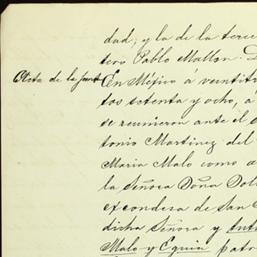 dad; y la de la terce
tero Pablo Mallon.
Acta de la Junt
En Méjico a veintitr
tos setenta y ocho, a
se reunieron ante el
tonio Martinez del
Maria Malo como a
la Señora Doña Dol
excondesa de San
dicha Señora y Ant
Malo y Equia patr